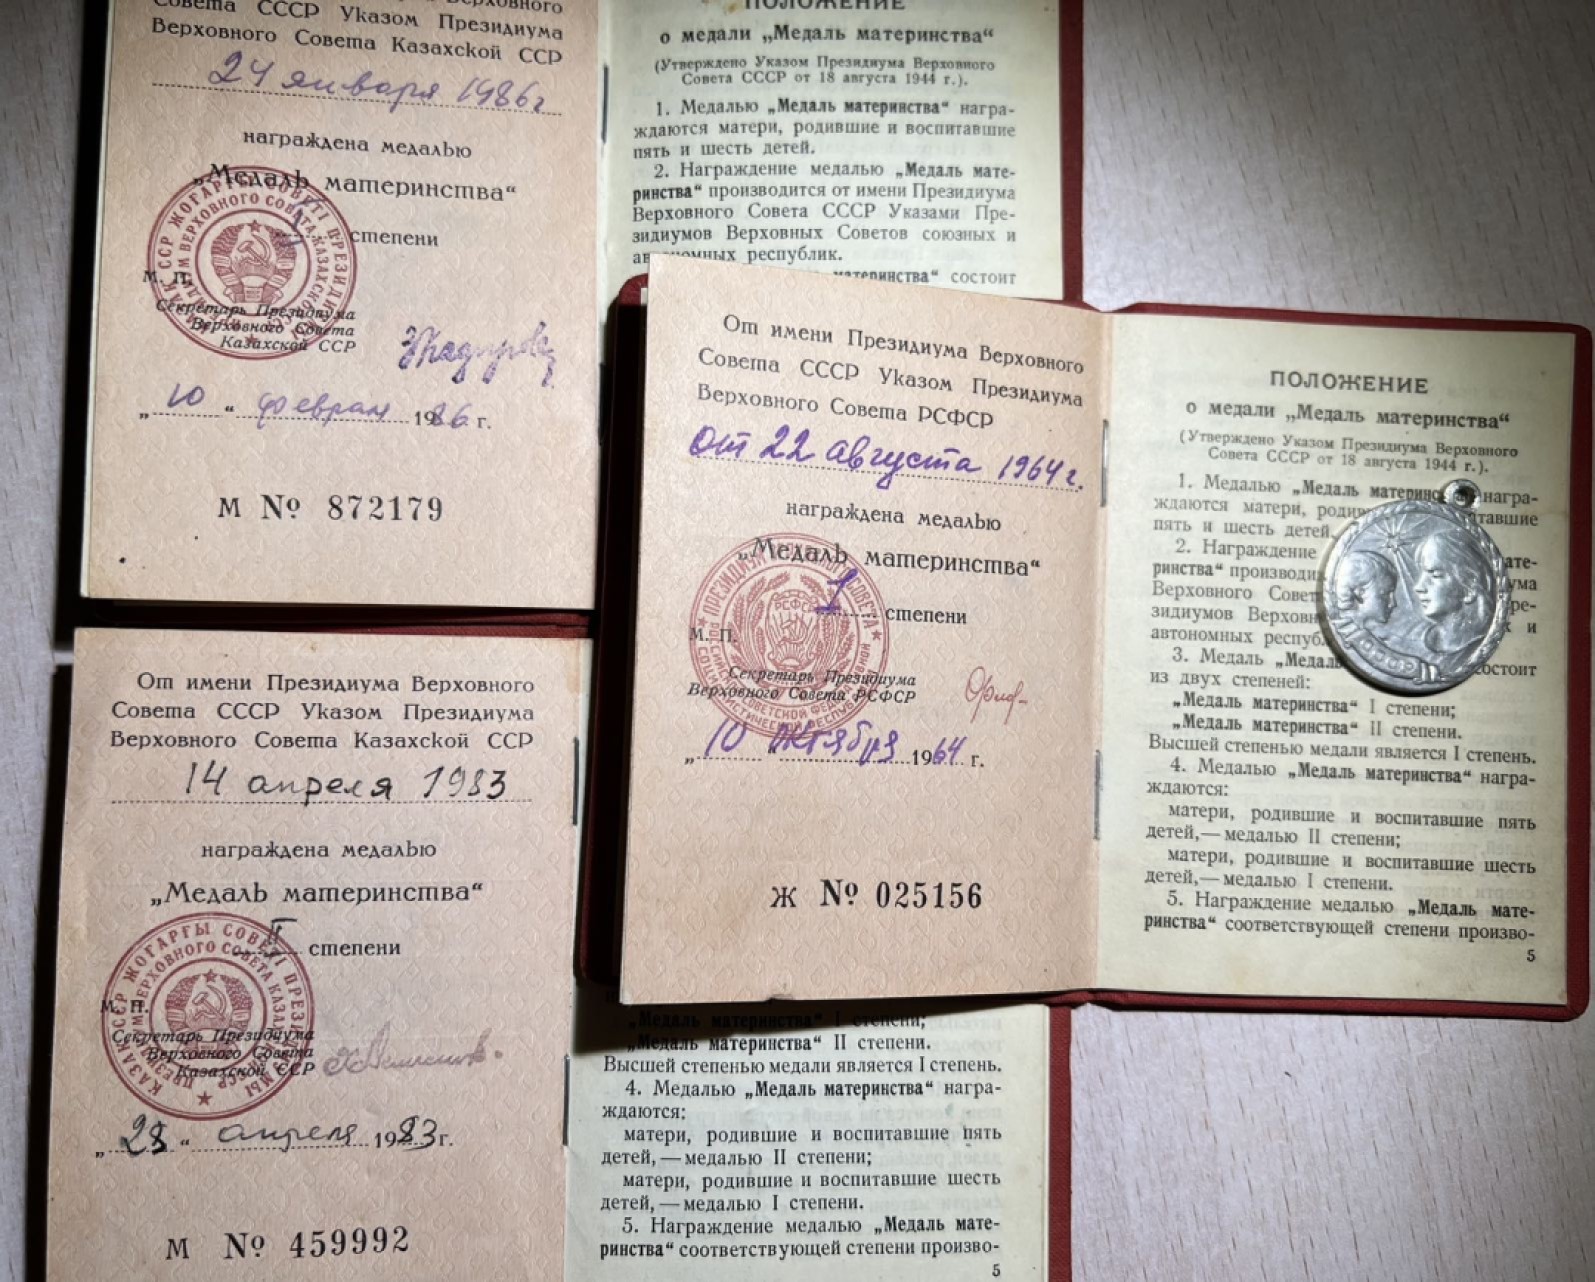 Верховного
Совета СССР Указом Президиума
Верховного Совета Казахской ССР
24 января 1986г
награждена медалью
„Медаль материнства“
степени
М. П.
Секретарь Президиума
Верховного Совета
Казахской ССР
„10“ февраля 1986 г.
М № 872179
ПОЛОЖЕНИЕ
о медали „Медаль материнства“
(Утверждено Указом Президиума Верховного
Совета СССР от 18 августа 1944 г.).
1. Медалью „Медаль материнства“ награ-
ждаются матери, родившие и воспитавшие
пять и шесть детей.
2. Награждение медалью „Медаль мате-
ринства“ производится от имени Президиума
Верховного Совета СССР Указами Пре-
зидиумов Верховных Советов союзных и
автономных республик.
материнства“ состоит
От имени Президиума Верховного
Совета СССР Указом Президиума
Верховного Совета РСФСР
от 22 августа 1964 г.
награждена медалью
„Медаль материнства“
I степени
М. П.
Секретарь Президиума
Верховного Совета РСФСР
„10“ октября 1964 г.
Ж № 025156
ПОЛОЖЕНИЕ
о медали „Медаль материнства“
(Утверждено Указом Президиума Верховного
Совета СССР от 18 августа 1944 г.).
1. Медалью „Медаль материнс награ-
ждаются матери, родив тавшие
пять и шесть детей.
2. Награждение мате-
ринства“ производи ума
Верховного Совет Пре-
зидиумов Верховн и
автономных республ
3. Медаль „Медаль состоит
из двух степеней:
„Медаль материнства“ I степени;
„Медаль материнства“ II степени.
Высшей степенью медали является I степень.
4. Медалью „Медаль материнства“ награ-
ждаются:
матери, родившие и воспитавшие пять
детей,—медалью II степени;
матери, родившие и воспитавшие шесть
детей,—медалью I степени.
5. Награждение медалью „Медаль мате-
ринства“ соответствующей степени произво-
5
СССР
От имени Президиума Верховного
Совета СССР Указом Президиума
Верховного Совета Казахской ССР
14 апреля 1983
награждена медалью
„Медаль материнства“
II степени
М. П.
Секретарь Президиума
Верховного Совета
Казахской ССР
„28“ апреля 1983 г.
М № 459992
„Медаль материнства“ I степени;
„Медаль материнства“ II степени.
Высшей степенью медали является I степень.
4. Медалью „Медаль материнства“ награ-
ждаются:
матери, родившие и воспитавшие пять
детей,—медалью II степени;
матери, родившие и воспитавшие шесть
детей,—медалью I степени.
5. Награждение медалью „Медаль мате-
ринства“ соответствующей степени произво-
5